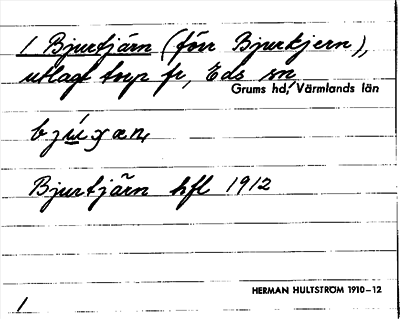 1 Bjurtjärn (förr Bjurkjern),
utlagt torp fr, Eds sn,
Grums hd, Värmlands län
Bjurtjärn hfl 1912
HERMAN HULTSTRÖM 1910–12
1